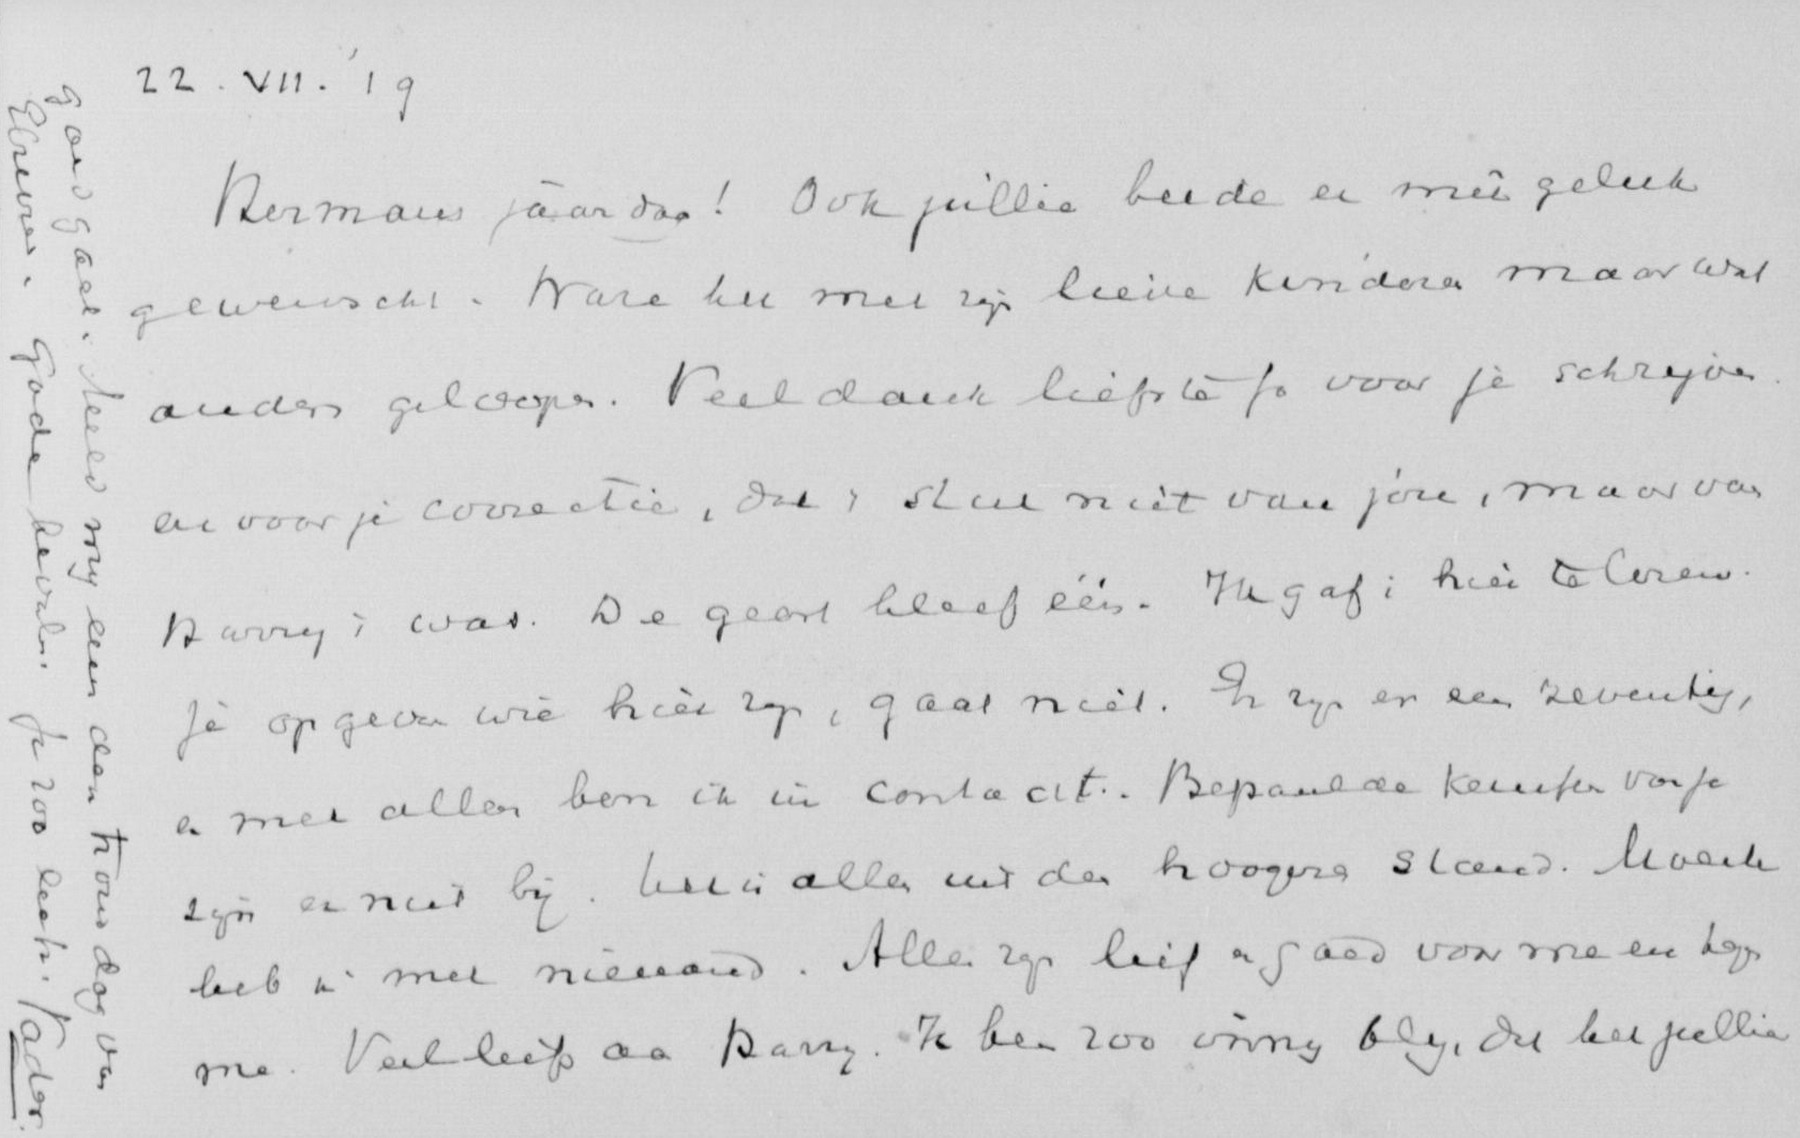 22. VII. '19
Hermans jaardag! Ook jullie beide er mee geluk
gewenscht. Ware het met zijn lieve kinderen maar wat
anders geloopen. Veel dank liefste Jo voor je schrijven
en voor je correctie, dat niet van jou, maar van
Harry was. De geest bleef één. Ik gaf hier te
je opgeven wie hier zijn, gaat niet. Er zijn er een zeventig,
en met allen ben ik in contact. Bepaalde van je
zijn er niet bij. Het is alles uit den hoogere stand. Moeite
heb ik met niemand. Allen zijn lief en goed voor me en
me. Veel liefs aan Harry. Ik ben zoo innig blij, dat het jullie
goed gaat. Meld mij eens den trouwdag van
Gode bevolen. Je zoo liefh. Vader.